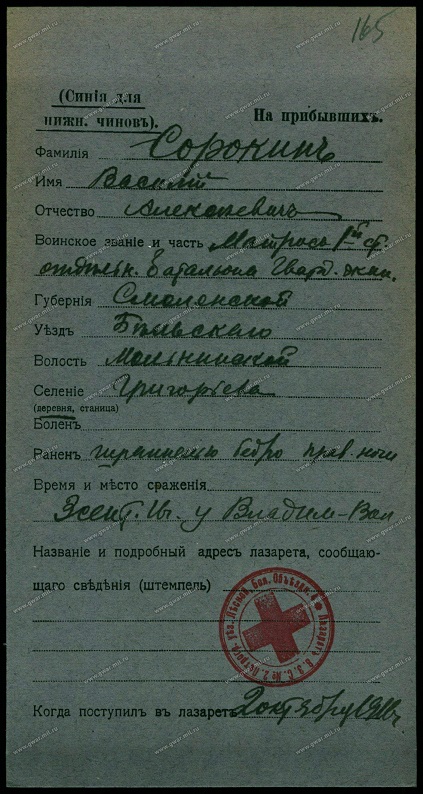 165
(Синія для
нижн. чиновъ).
На прибывшихъ.
Фамилія Сорокинъ
Имя Василій
Отчество Алексѣевичъ
Воинское званіе и часть Матросъ 1й ст.
отдѣльн. Баталіона Гвард. экип.
Губернія Смоленской
Уѣздъ Бѣльскаго
Волость
Селеніе Григорьева
(деревня, станица)
Боленъ
Раненъ шрапнелью бедро прав. ноги
Время и мѣсто сраженія
у Владим-Вол
Названіе и подробный адресъ лазарета, сообщаю-
щаго свѣдѣнія (штемпель)
Когда поступилъ въ лазаретъ 2 октября 1916 г.
www.gwar.mil.ru